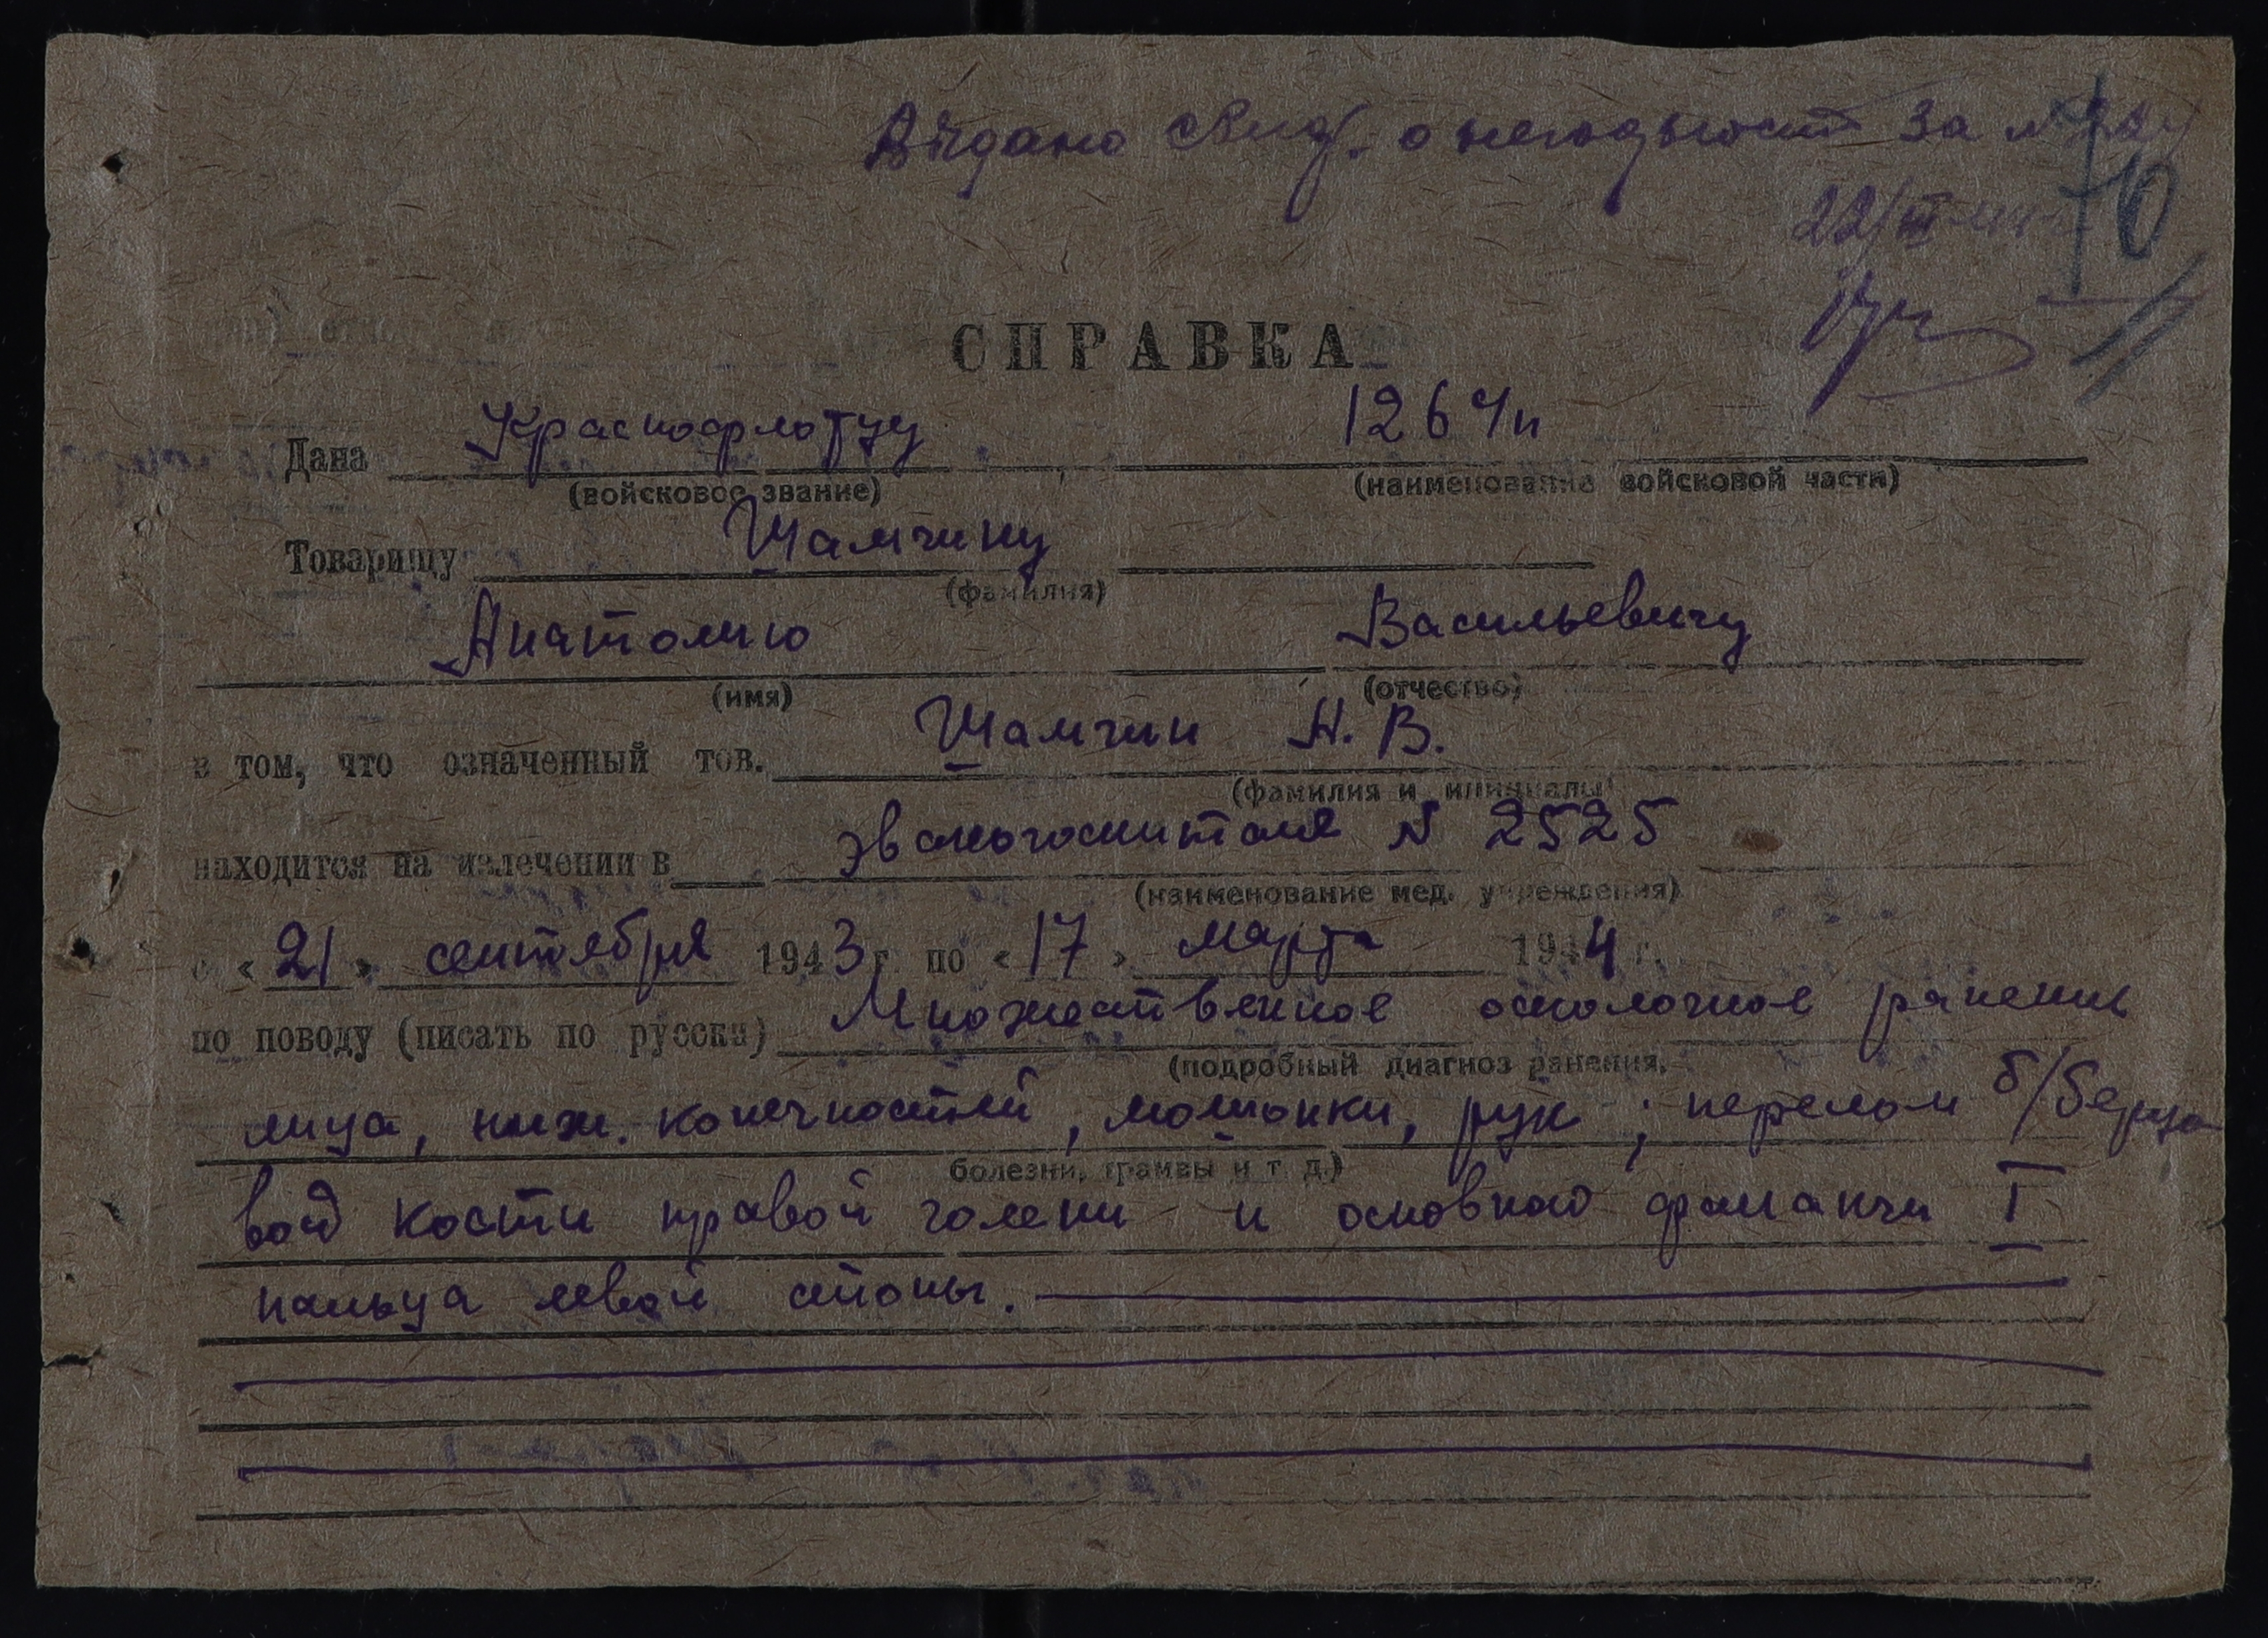 Выдано свид. о негодности за №
22/III-44г.
10
СПРАВКА
Дана Краснофлотцу, 126 ч/п
(войсковое звание) (наименование войсковой части)
Товарищу Шамчину
(фамилия)
Анатолию Васильевичу
(имя) (отчество)
в том, что означенный тов. Шамчин А. В.
(фамилия и инициалы)
находится на излечении в эвакогоспитале № 2525
(наименование мед. учреждения)
с «21» сентября 1943 г. по «17» марта 1944 г.
по поводу (писать по русски) Множественное осколочное ранение
(подробный диагноз ранения,
лица, ниж. конечностей, мошонки, рук; перелом б/берцо
болезни, травмы и т д.)
вой кости правой голени и основной фаланги I
пальца левой стопы.